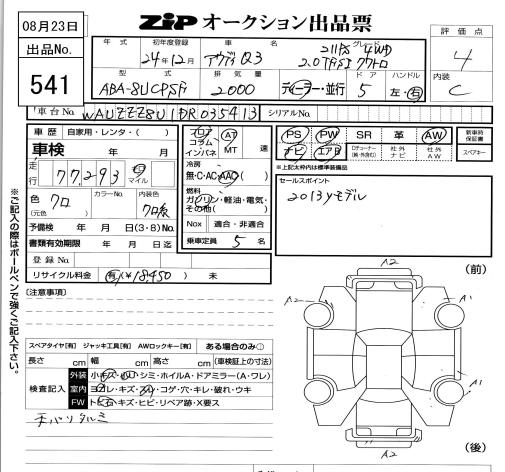 08月23日
出品No.
541
ZIP オークション出品票
評価点
4
内装
C
年式 初年度登録 車名 グレード
24年12月 アウディ Q3 211PS 4WD 2.0TFSI クワトロ
型式 排気量 ドア ハンドル
ABA-8UCPSF 2000 ディーラー・並行 5 左・右
車台No. WAUZZZ8U1DR035413 シリアルNo.
車歴 自家用・レンタ・( )
車検 年 月
走行 77,293 キロ マイル
色 クロ (元色) カラーNo. 内装色 クロ
予備検 年 月 日(3・8)No.
書類有効期限 年 月 日迄
登録No.
リサイクル料金 有(¥18,450) 未
フロア コラム インパネ AT MT 速
冷房
無・C・AC・AAC
燃料
ガソリン・軽油・電気・その他( )
Nox 適合・非適合
乗車定員 5 名
PS PW SR 革 AW
ナビ エアB Dチョーナー 社外ナビ 社外AW
新車時保証書
スペアキー
※上記太枠内は標準装備品
セールスポイント
2013yモデル
※ご記入の際はボールペンで強くご記入下さい。
[注意事項]
スペアタイヤ[有] ジャッキ工具[有] AWロックキー[有] ある場合のみ○
長さ cm 幅 cm 高さ cm (車検証上の寸法)
検査記入
外装 小キズ・凹・シミ・ホイルA・ドアミラー(A・ワレ)
室内 ヨゴレ・キズ・スレ・コゲ・穴・キレ・破れ・ウキ
FW トビ石・キズ・ヒビ・リペア跡・X要ス
天バリタルミ
A2
(前)
A2
A1
A2
(後)